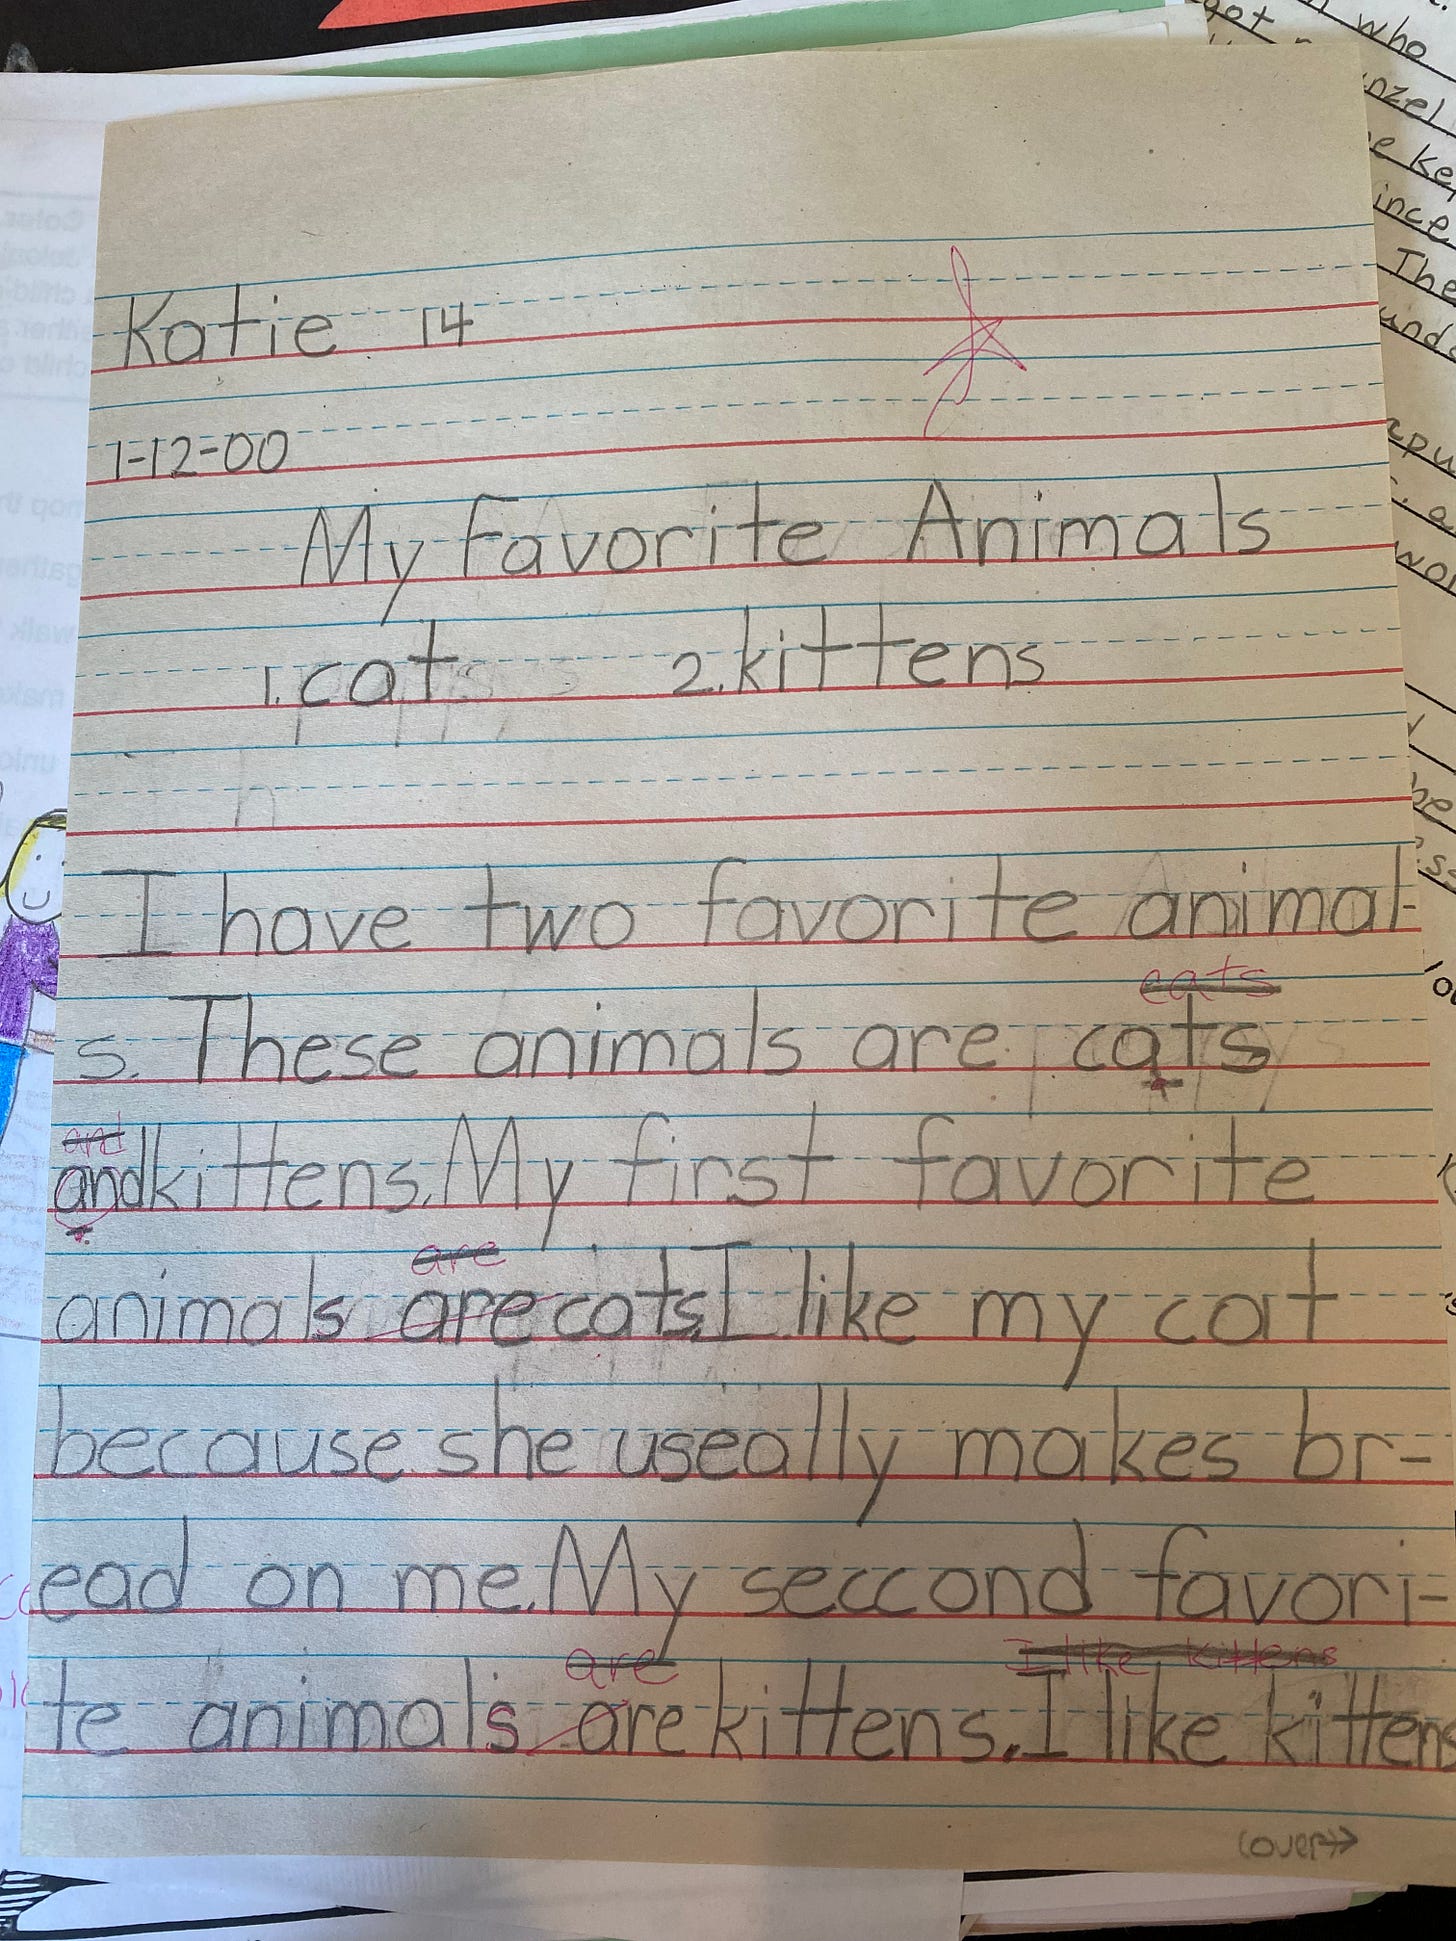 Katie 14
1-12-00
My Favorite Animals
1. cats 2. kittens
I have two favorite animal-
cats
s. These animals are cats
and
and kittens. My first favorite
are
animals are cats. I like my cat
because she useally makes br-
ead on me. My seccond favori-
are I like kittens
te animals are kittens. I like kittens
(over)
got who
nzel
e ke
ince
The
unde
epu
wor
be